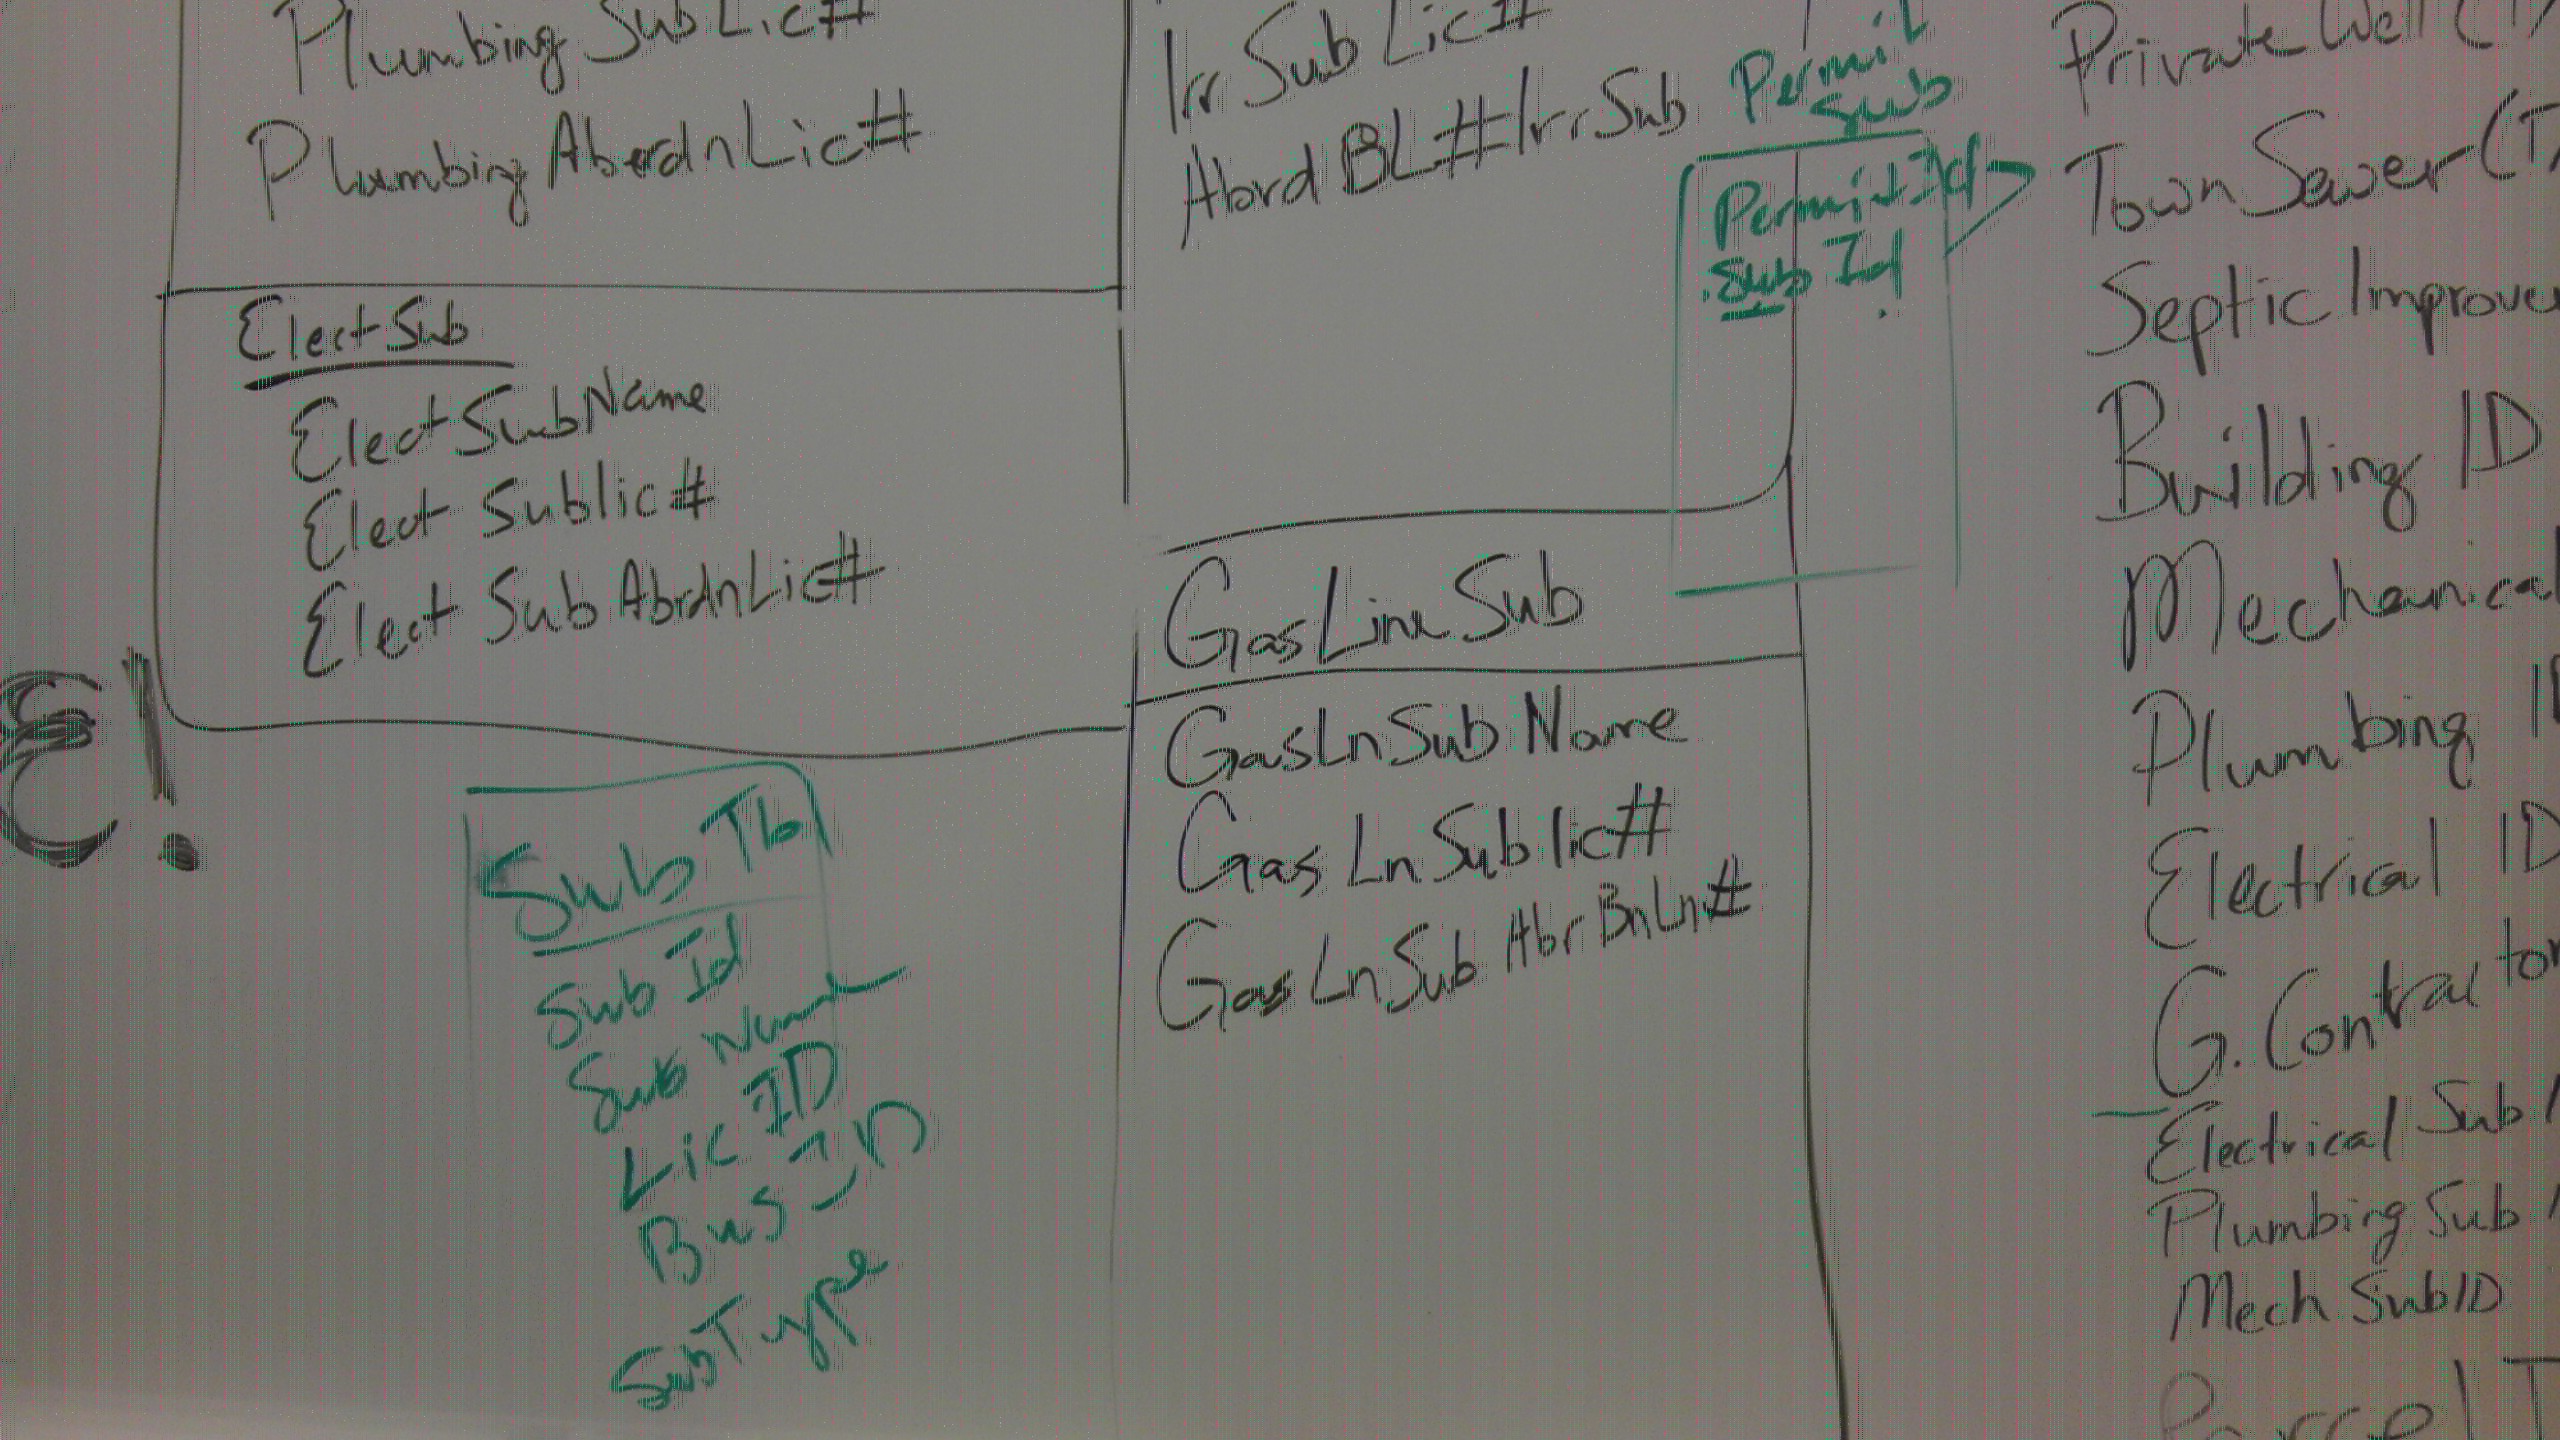 Plumbing SubLic#
Plumbing AberdnLic#
ElectSub
ElectSubName
Elect Sublic#
Elect Sub AbrdnLic#
E!
Sub Tb
Sub Id
Sub Name
Lic ID
Bus ID
SubType
Irr Sub Lic#
Abrd BL# IrrSub
GasLineSub
GasLnSub Name
Gas LnSublic#
Gas LnSub AbrBnLn#
Permit
Sub
Permit Id
Sub Id
Private Well (
Town Sewer (T
Septic Improve
Building ID
Mechanical
Plumbing I
Electrical ID
G. Contractor
Electrical Sub
Plumbing Sub
Mech SubID
Parcel